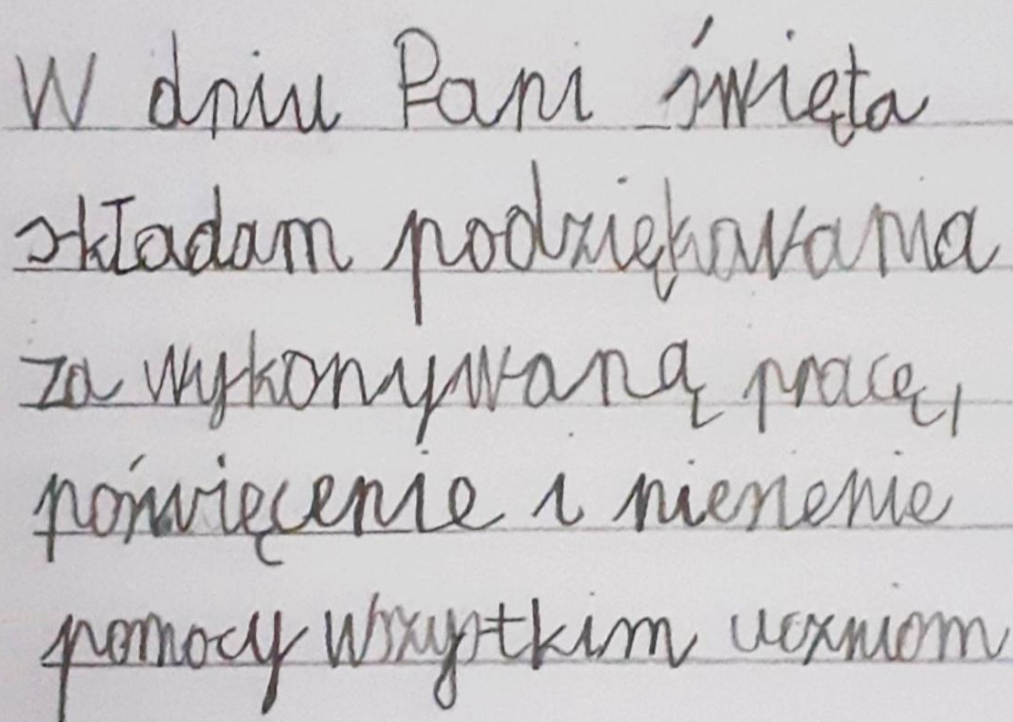 W dniu Pani święta
składam podziękowania
za wykonywaną pracę,
poświęcenie i niesienie
pomocy wszystkim uczniom